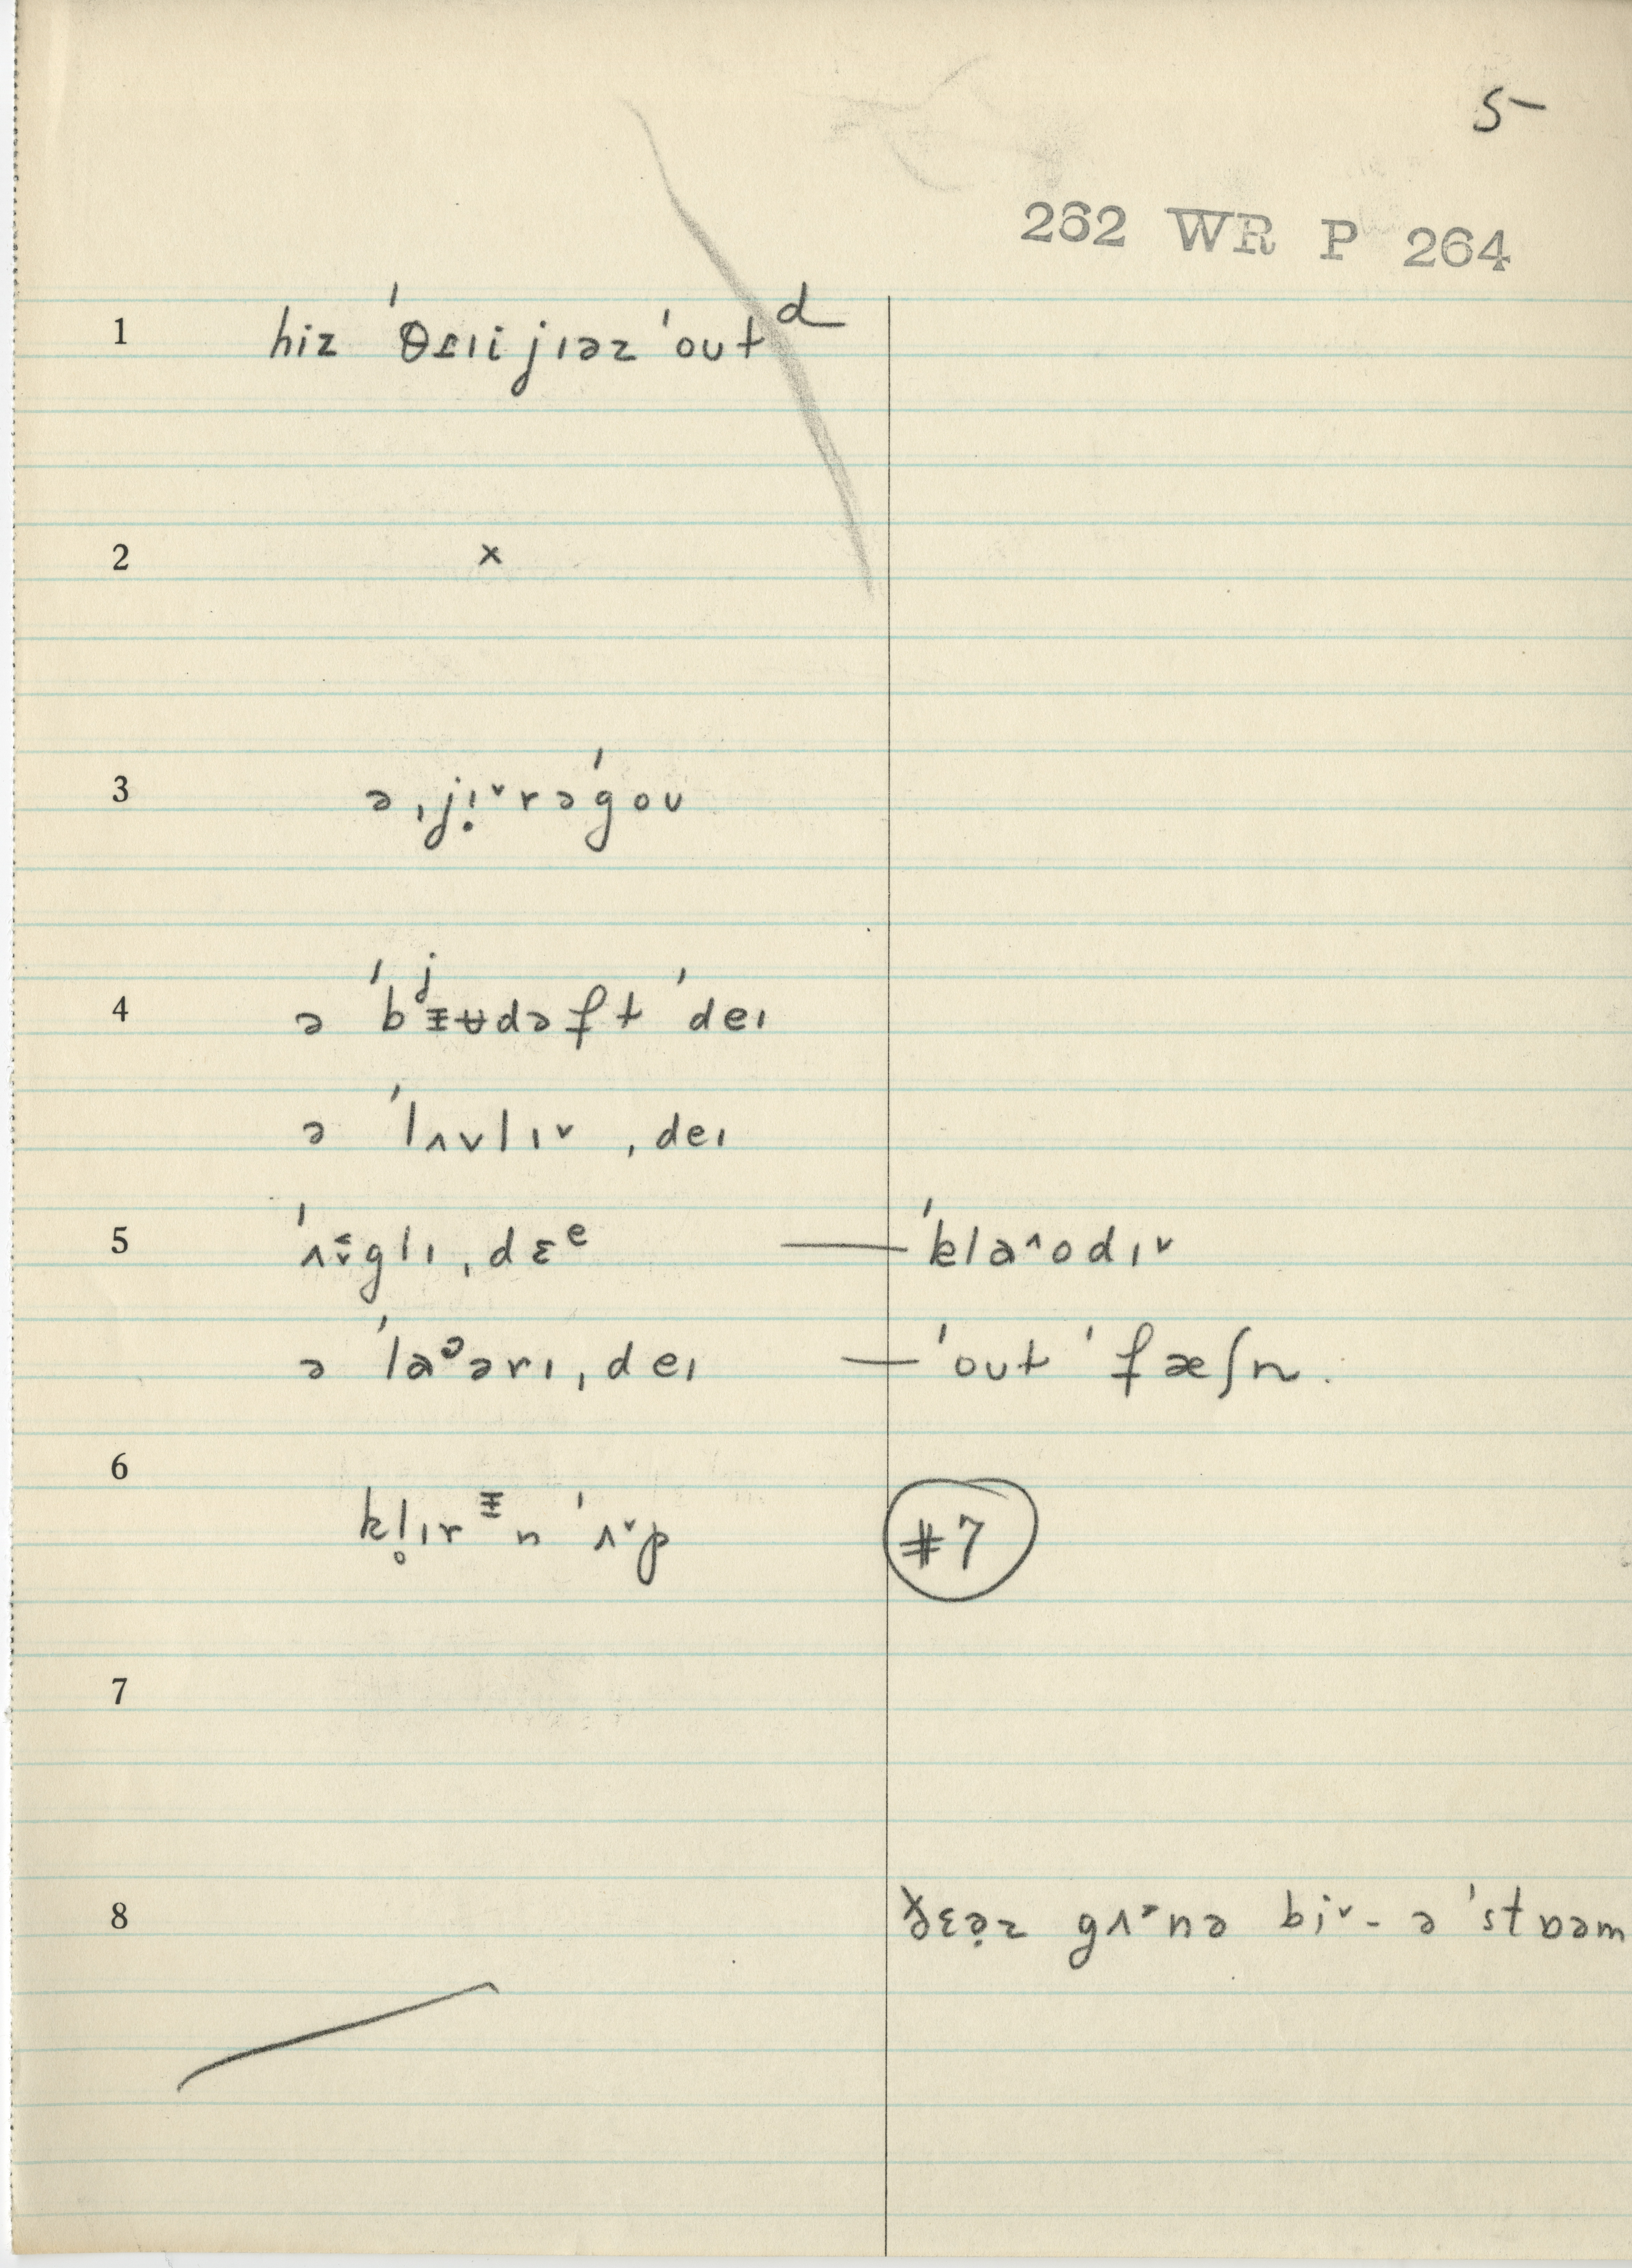 5-
262 WR P 264
1 hiz ˈθɹɪi jɪəz ˈoʊt d
2 x
3 ə ˌjɪ̣˅rəˈgoʊ
4 ə ˈbʲᵻʉdəft ˈdeɪ
ə ˈlʌvlɪ˅ ˌdeɪ
5 ˌdɛᵉ — ˈklaˆodɪ˅
ə ˈlaᵊərɪ ˌdeɪ — ˈoʊt ˈfæʃn.
6 kl̥ɪrᵻn ˈʌ˅p #7
7
8 gʌ˃nə bi˅- ə ˈstɒəm